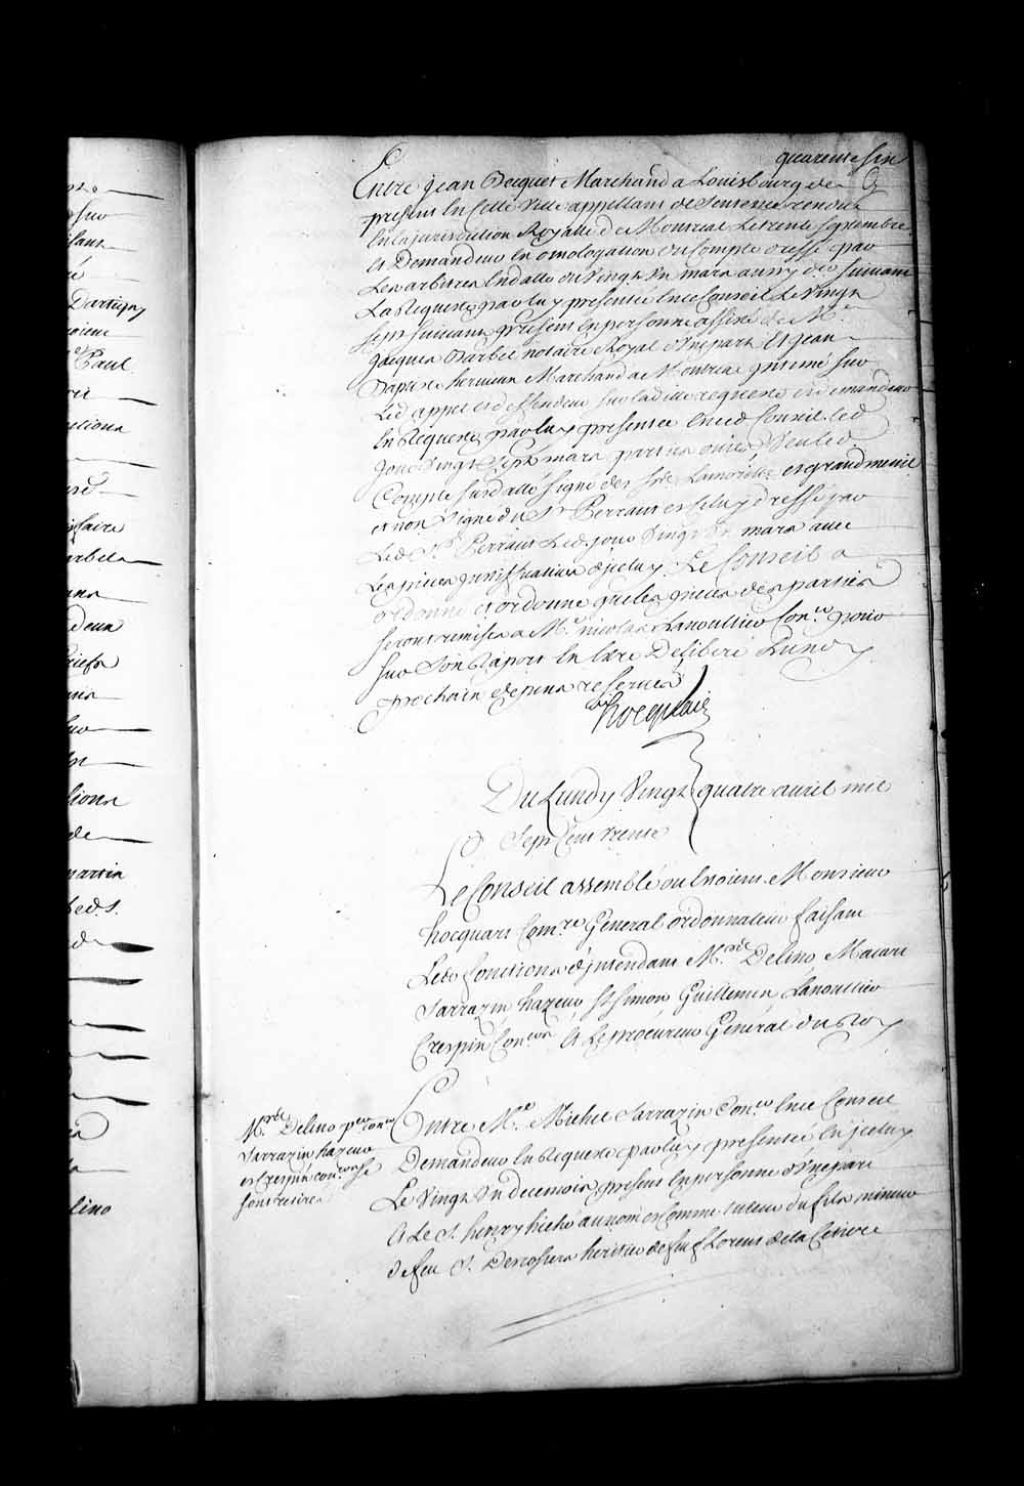 quarente six
Entre Jean Becquet Marchand a Louisbourg de
present En Cette Ville appellant de Sentence rendue
En la jurisdiction Royalle de Montreal Le trente septembre
et Demandeur en omologation du Compte dressé par
Les arbitres En datte du Vingt un mars aussy dr suivant
La Requeste par luy presentée Ence Conseil Le Vingt
sept suivant present En personne assisté de Me
Jacques Barbel notaire Royal d'Une part Et Jean
Baptiste herveux Marchand a Montreal Intimé sur
Led appel et deffendeur sur ladite requeste et demandeur
En Requeste par luy presentée Aud Conseil led
Jour Vingt sept mars parties ouies, Veu led
Compte susdatté signé des Srs Lamorille et grandmenil
et non signé du Sr Perraut et celuy dressé par
Led Sr Perraut Led. jour Vingt un mars avec
Les pieces justificatives d'Jceluy. Le Conseil a
ordonné et ordonne que les pieces des parties
seront remises a Me nicolas Lanoullier Coner pour
sur Son Raport En Etre Deliberé Lundy
prochain depens reservés
hocquart
Du Lundy Vingt quatre avril mil
Sept Cent trente
Le Conseil assemblé ou Etoient Monsieur
hocquart Comre General ordonnateur faisant
Les fonctions d'Jntendant Mrs Delino Macart
Sarrazin hazeur St Simon Guillemin Lanoullier
Crespin Coners Et Le procureur General du Roy
Mrs Delino per Coner
Sarrazin hazeur
et Crespin Coners se
sont retirés
Entre Me Michel Sarrazin Coner Ence Conseil
Demandeur En Requeste par luy presentée En Jceluy
Le Vingt un decembre, present En personne d'Une part
Et Le Sr henry hiché au nom et Comme tuteur du fils mineur
de feu Sr Desrosiers heritier de feu Florent de la Cetiere